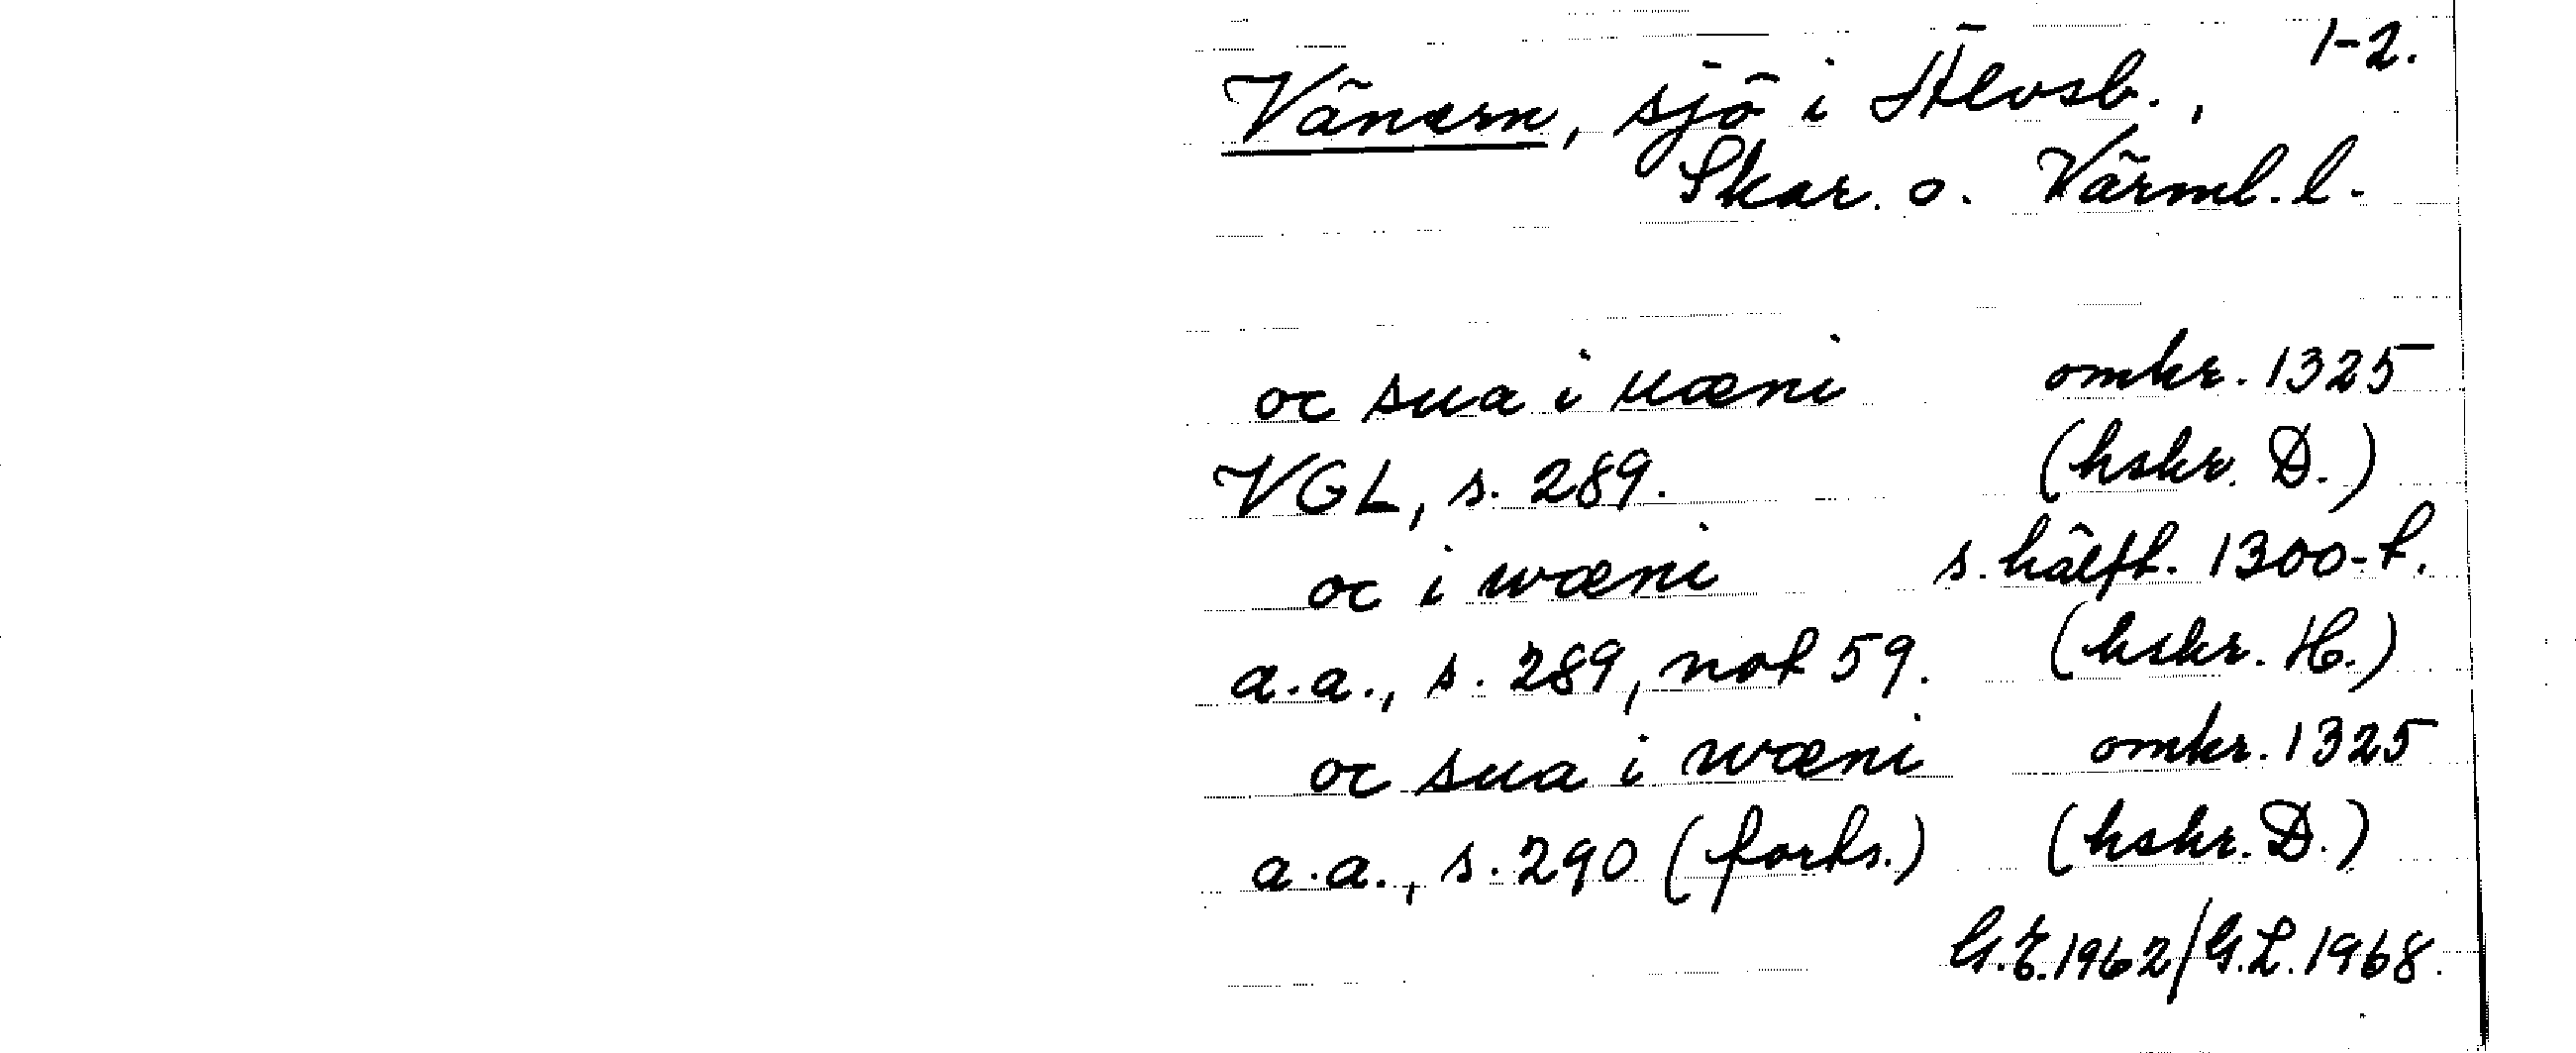 1-2.
Vänern, sjö i Älvsb.,
Skar. o. Värml. l.
oc sua i uæni omkr. 1325
VGL, s. 289. (hskr. D.)
oc i wæni s. hälft. 1300-t.
a.a., s. 289, not 59. (hskr. H.)
oc sua i wæni omkr. 1325
a.a., s. 290 (forts.) (hskr. D.)
G.E. 1962/G.L. 1968.